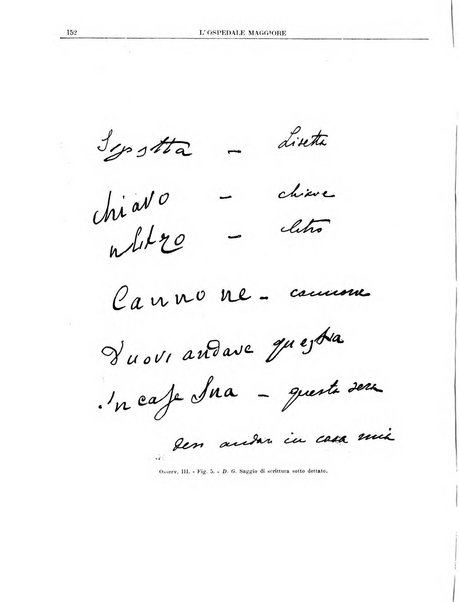 152 L'OSPEDALE MAGGIORE
Sepotta — Lisetta
chiavo — chiave
nlitro — litro
Cannone — cannone
Duovi andave questra
in case Sua — questa sera
devi andar in casa mia
Osserv. III. - Fig. 5. - D. G. Saggio di scrittura sotto dettato.